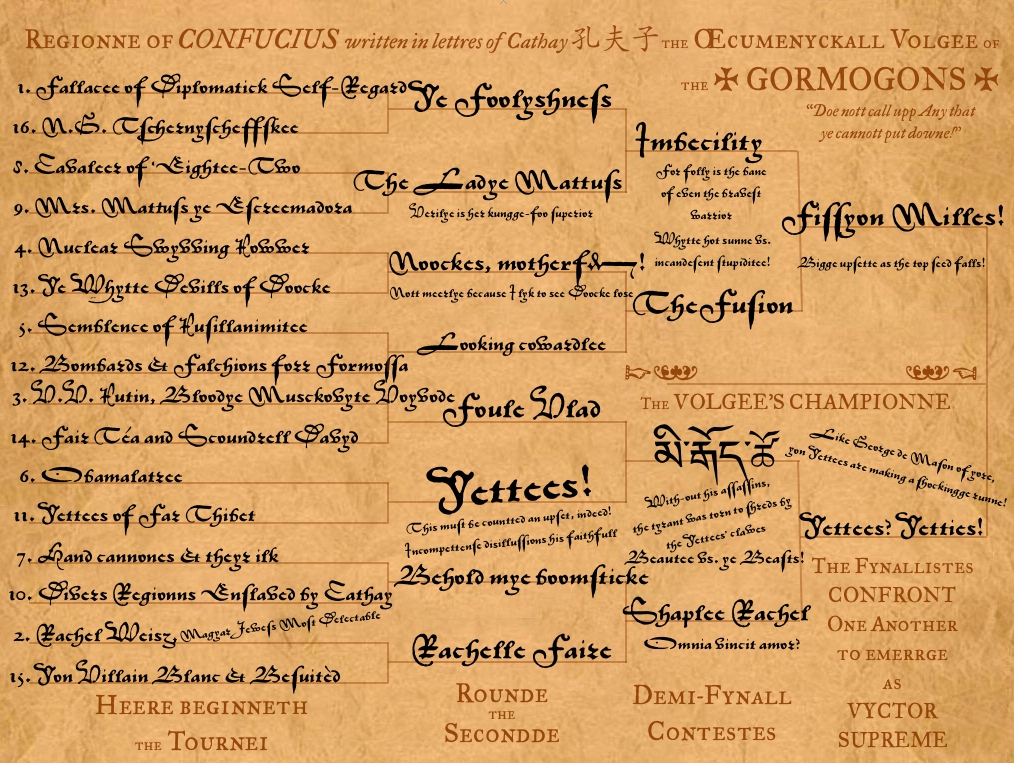 REGIONNE OF CONFUCIUS written in lettres of Cathay 孔夫子 THE ŒCUMENYCKALL VOLGEE OF
THE ✠ GORMOGONS ✠
“Doe nott call upp Any that
ye cannott put downe!”
1. Fallacee of Diplomatick Self-Regard
16. N.G. Tſchernyſcheffſkee
8. Cavaleer of Eightee-Two
9. Mrs. Mattuſs ye Eſcreemadora
4. Nuclear Swyvving Powwer
13. Ye Whytte Devills of Doocke
5. Semblence of Puſillanimitee
12. Bombards & Falchions forr Formoſſa
3. V.V. Putin, Bloodye Musckovyte Voyvode
14. Fair Téa and Scoundrell Davyd
6. Obamalatree
11. Yettees of Far Thibet
7. Hand cannones & theyr ilk
10. Divers Regionns Enſlaved by Cathay
2. Rachel Weisz, Magyar Jewess Most Delectable
15. Yon Villain Blanc & Beſuitèd
HEERE BEGINNETH
THE TOURNEI
Ye Foolyshneſs
The Ladye Mattuſs
Verilye is her kungge-foo ſuperior
Noockes, motherf&—!
Nott meerlye because I lyk to see Doocke lose
Looking cowardlee
Foule Vlad
Yettees!
This muſt be countted an upſet, indeed!
Incompettense diſilluſſions his faithfull
Behold mye boomſticke
Rachelle Faire
ROUNDE
THE
SECONDDE
Imbecility
For folly is the bane
of even the braveſt
warrior
Whytte hot sunne vs.
incandeſent ſtupiditee!
The Fuſion
མི་རྒོད་ཆོ
With-out his aſſaſſins,
the tyrant was torn to ſhreds by
the Yettees' clawes
Beautee vs. ye Beaſts!
Shaplee Rachel
Omnia vincit amor?
DEMI-FYNALL
CONTESTES
Fiſſyon Milles!
Bigge upſette as the top ſeed falls!
THE VOLGEE’S CHAMPIONNE
Like George de Maſon of yore,
yon Yettees are making a ſhockingge runne!
Yettees? Yetties!
THE FYNALLISTES
CONFRONT
ONE ANOTHER
TO EMERRGE
AS
VYCTOR
SUPREME